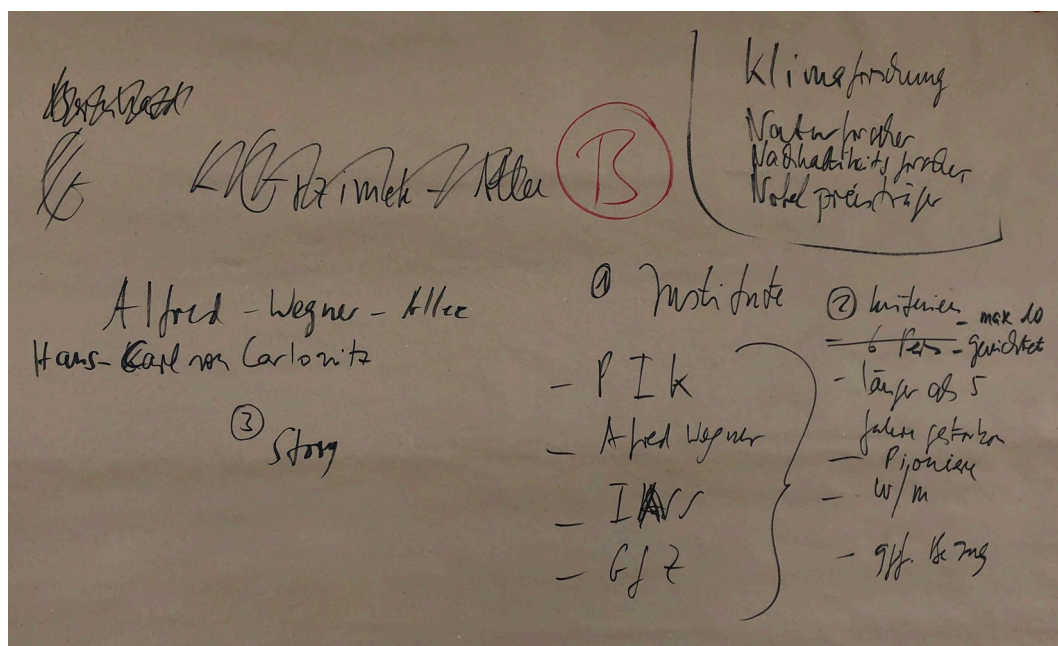 Klimaforschung
Naturforscher
Nachhaltikeits forscher
Nobel preisträger
Grzimek - Allee
B
Alfred - Wegner - Allee
Hans - Carl von Carlowitz
③ Story
① Institute
- PIK
- Alfred Wegner
- IASS
- GfZ
② Kriterien
- 6 Pers - max 10
- gewichtet
- länger als 5
Jahre gestorben
- Pioniere
- w/m
- ggf. Bezug